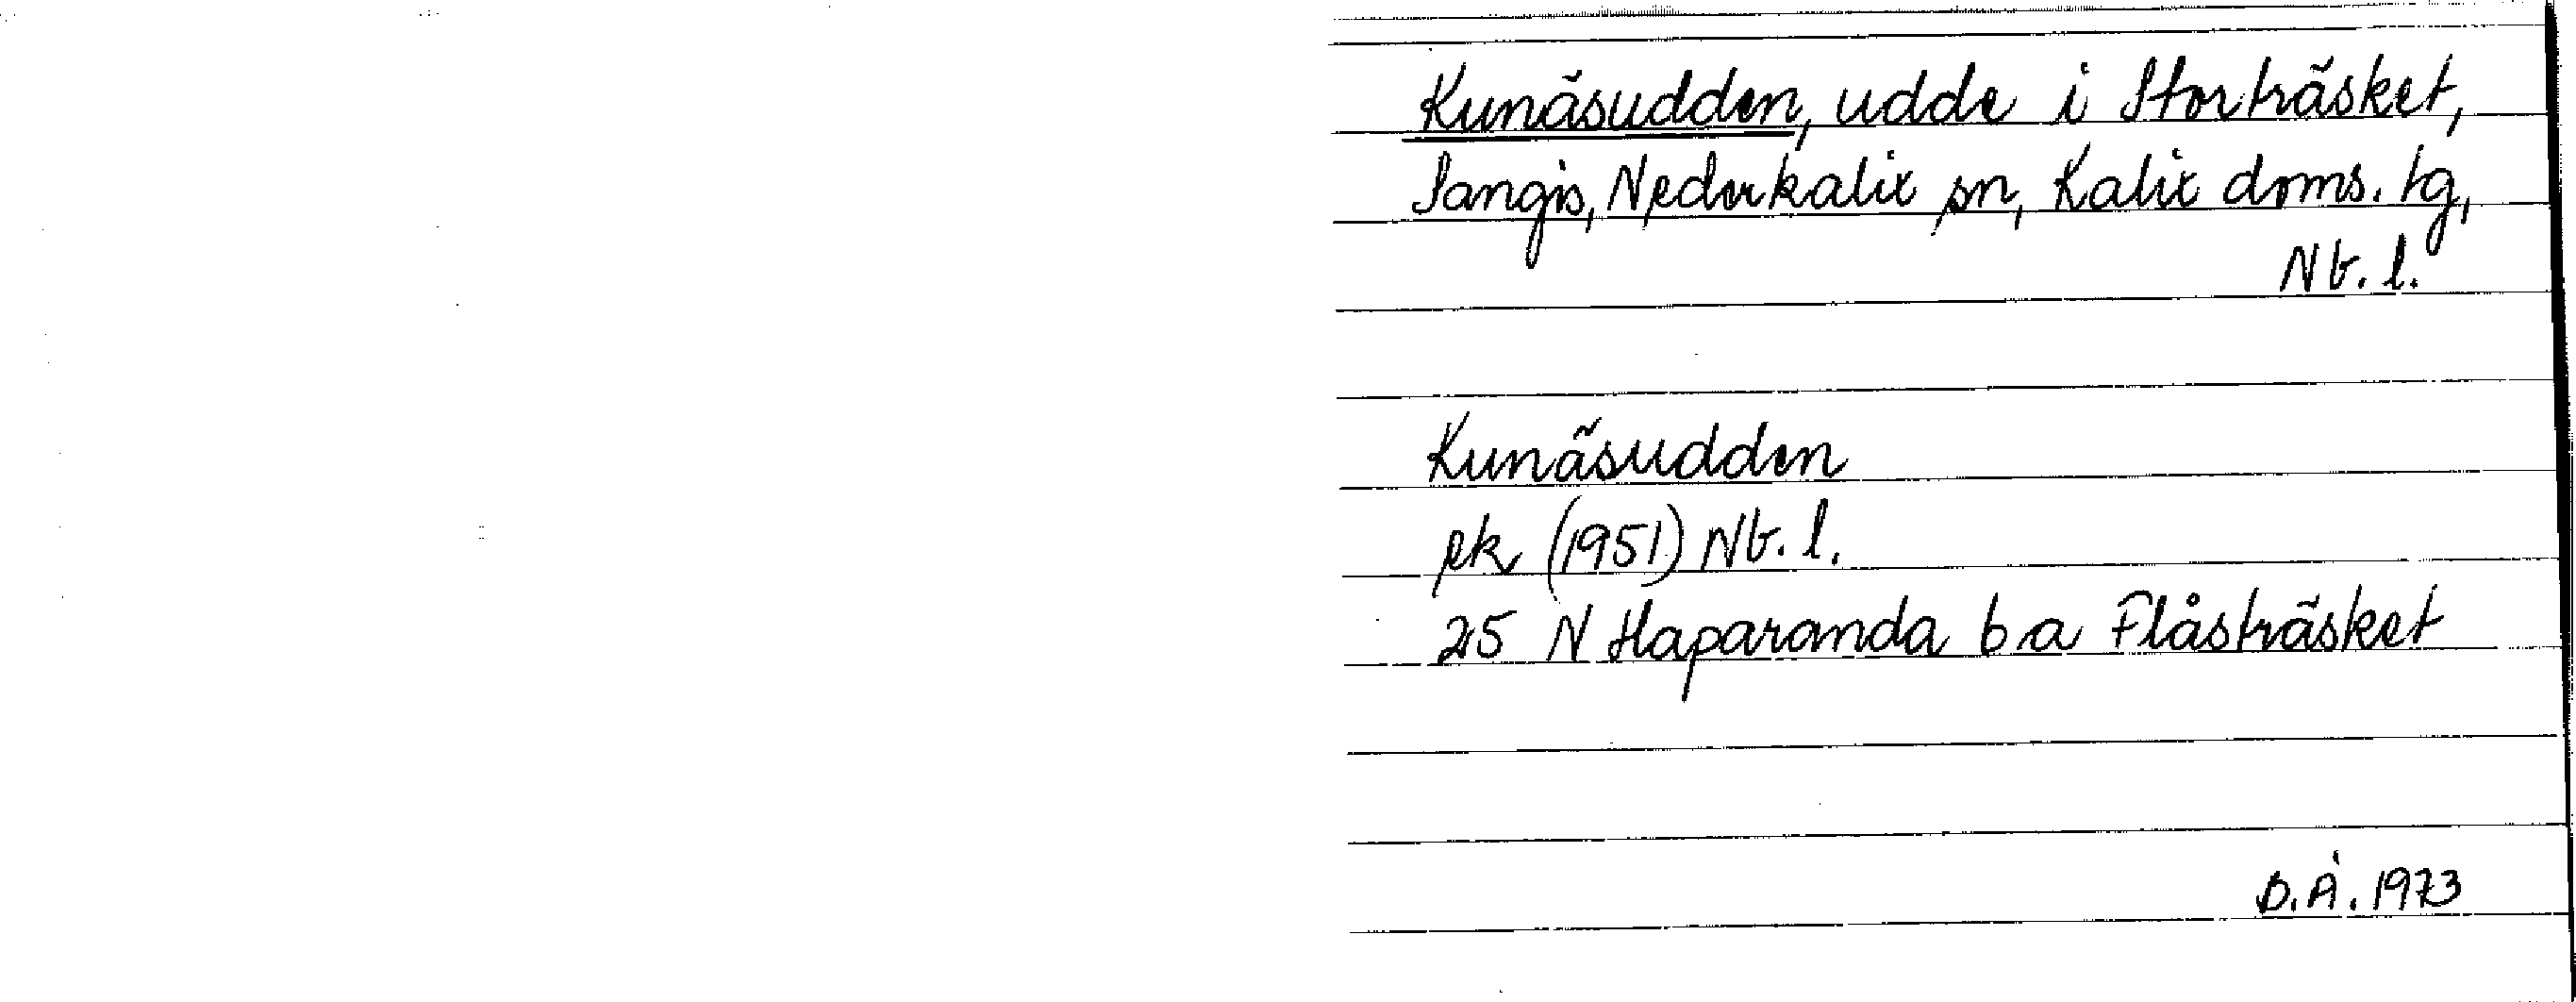 Kunäsudden, udde i Storträsket,
Sangis, Nederkalix sn, Kalix doms. tg,
Nb. l.
Kunäsudden
ek (1951) Nb. l.
25 N Haparanda b a Flåsträsket
D.Å. 1973